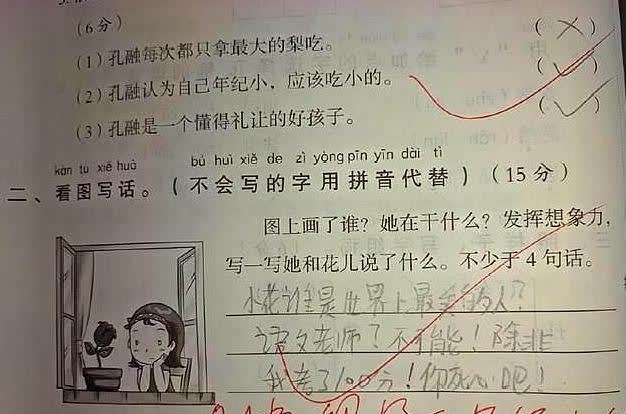 (6分)
(1)孔融每次都只拿最大的梨吃。 (×)
(2)孔融认为自己年纪小，应该吃小的。 (✓)
(3)孔融是一个懂得礼让的好孩子。 (✓)
kàn tú xiě huà bú huì xiě de zì yòng pīn yīn dài tì
二、看图写话。(不会写的字用拼音代替)(15分)
图上画了谁？她在干什么？发挥想象力，
写一写她和花儿说了什么。不少于4句话。
小花谁是世界上最美的人？
语文老师？不可能！除非
我考了100分！你死心吧！